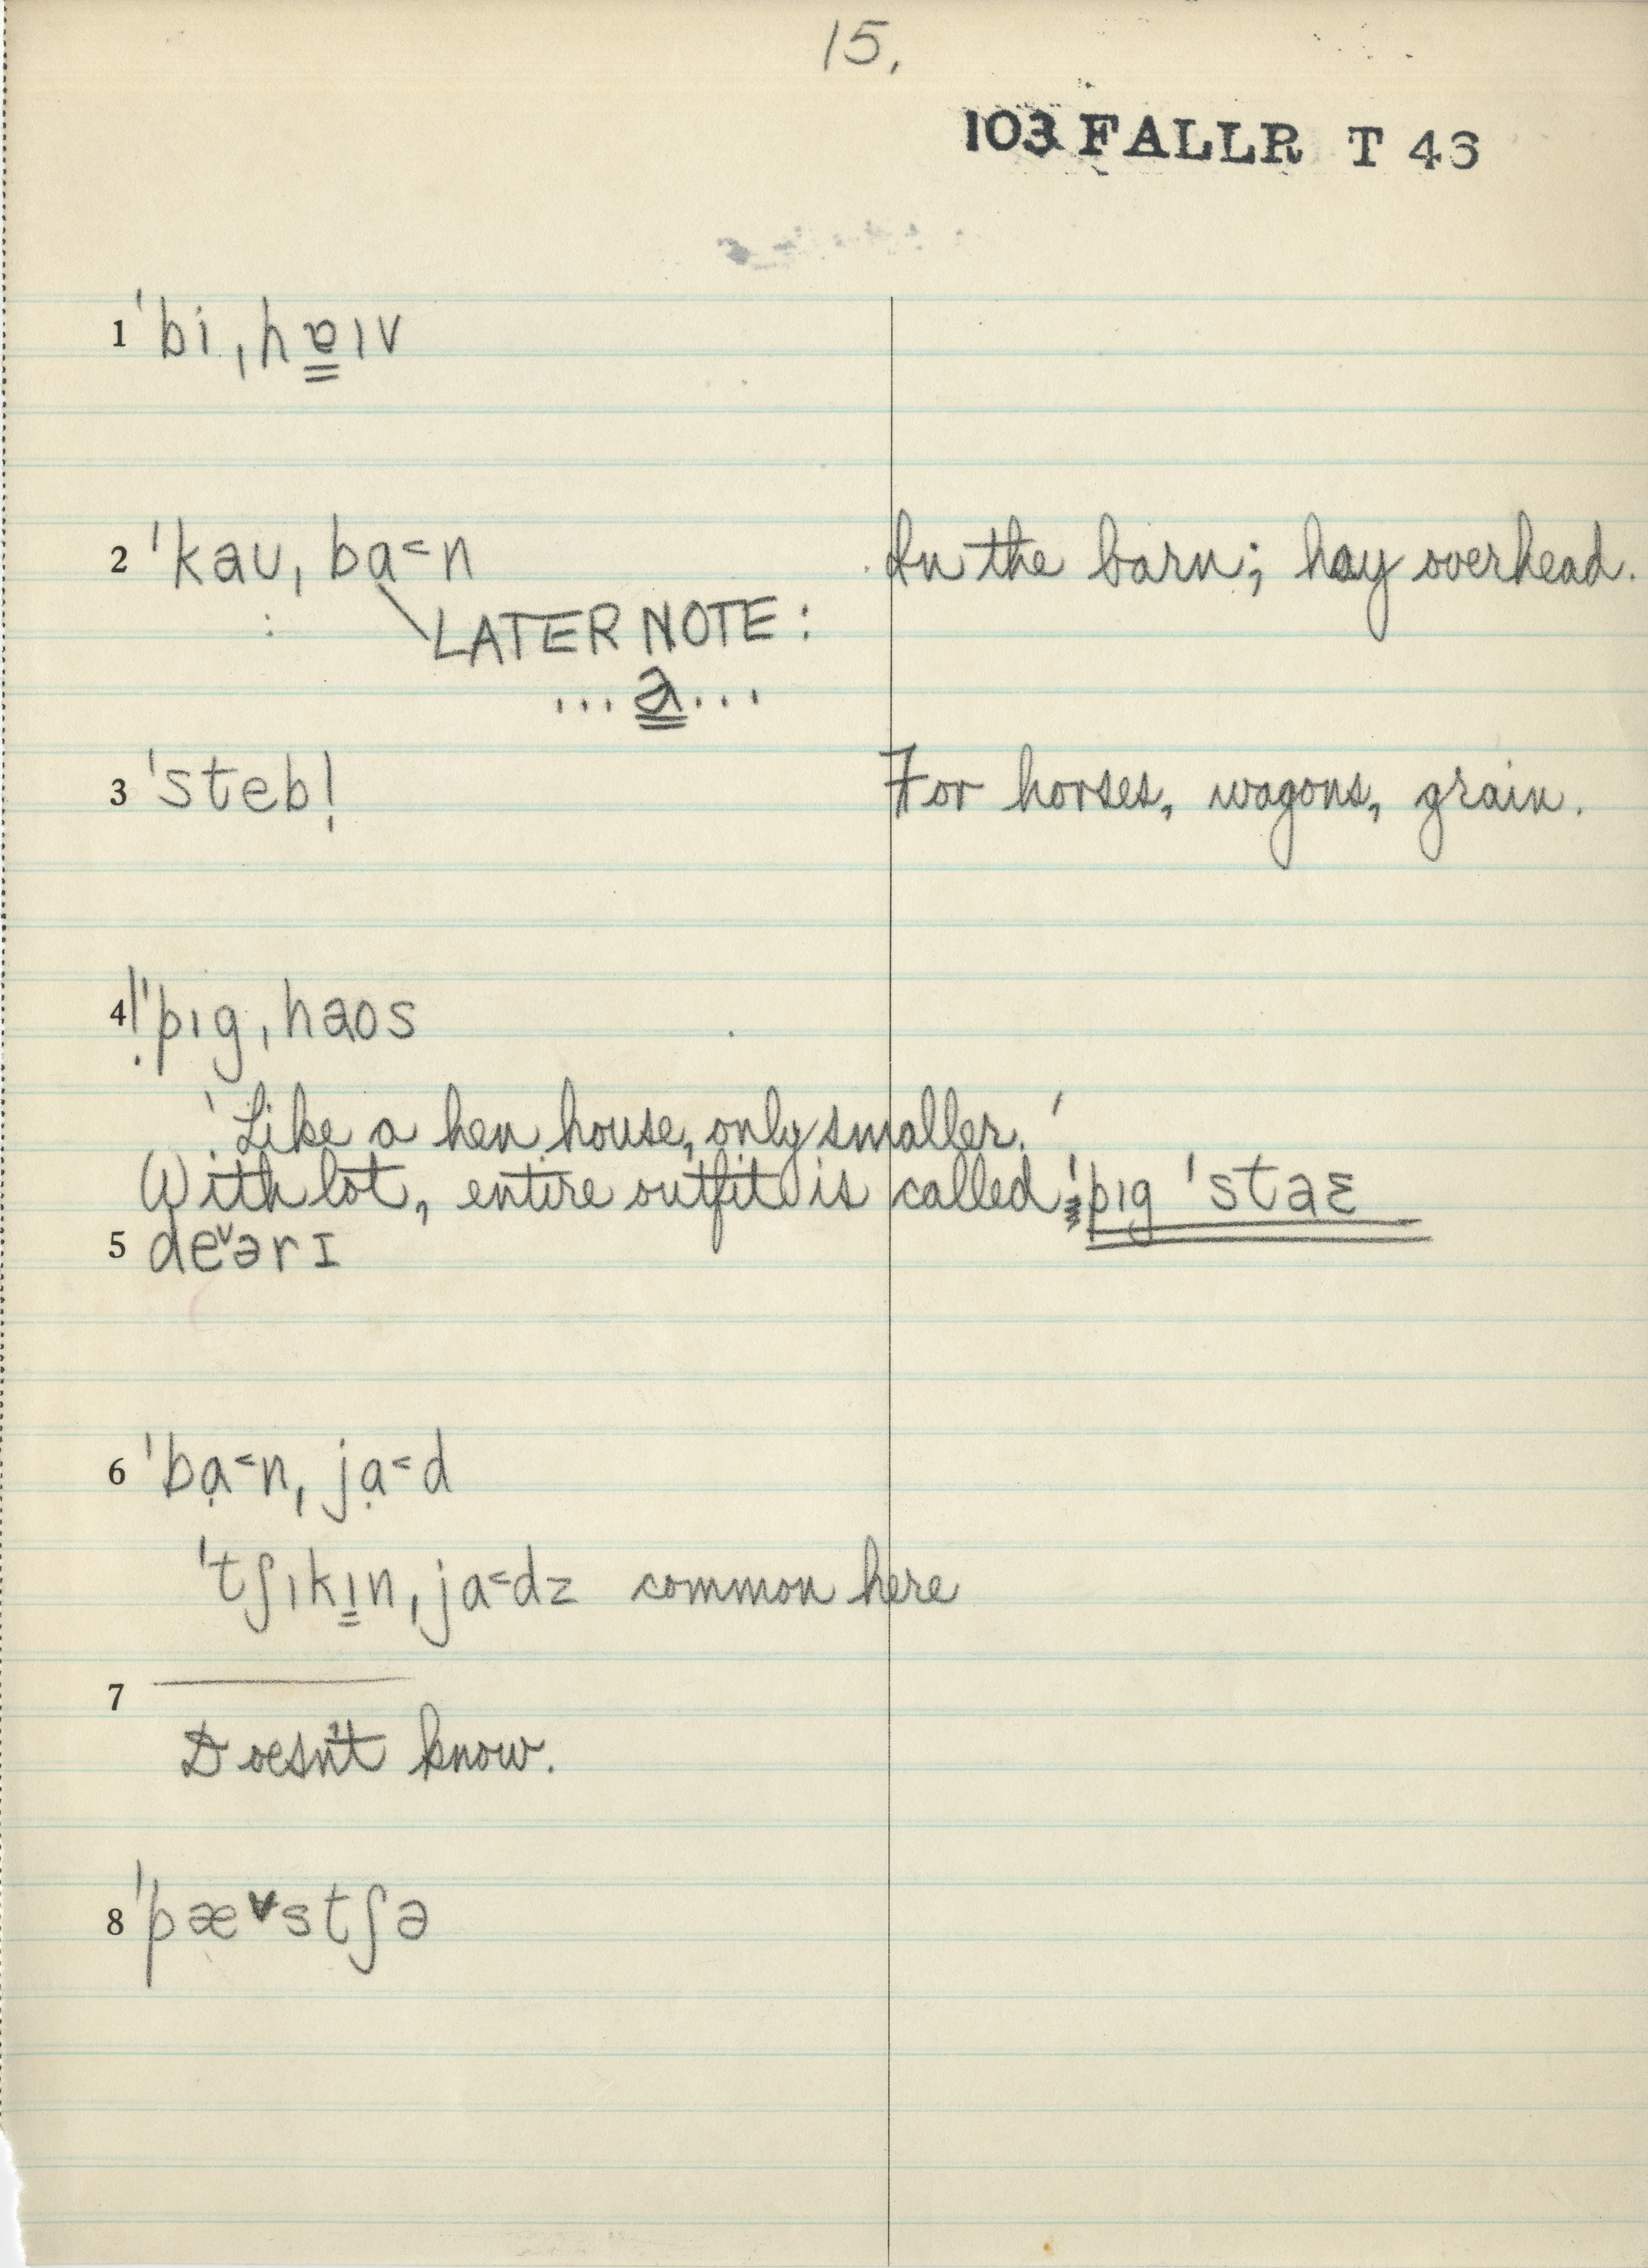 15.
103 FALLR T 43
1 ˈbiˌhɐ̳ɪv
2 ˈkaʊˌba˂n In the barn; hay overhead.
LATER NOTE:
...a̳...
3 ˈstebl̩ For horses, wagons, grain.
4 !ˈpɪgˌhaos
'Like a hen house, only smaller.'
With lot, entire outfit is called ˈpɪg ˈstaɛ
5 de˅ərɪ
6 ˈbạ˂nˌjạ˂d
ˈtʃɪkɪ̳nˌja˂dz common here
7 ———
Doesn't know.
8 ˈpæ˅stʃə